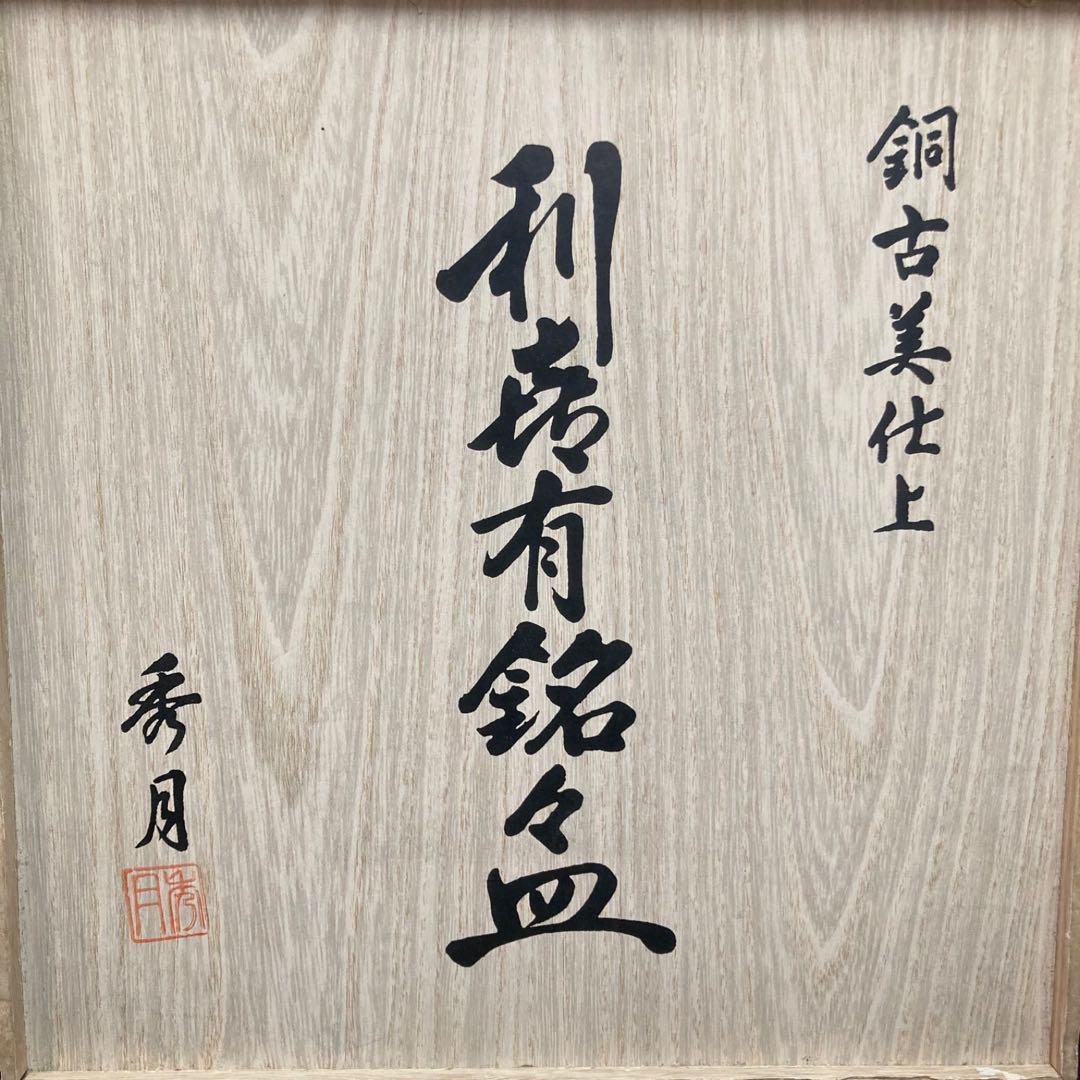 銅古美仕上
利㐂有銘々皿
秀月
秀月